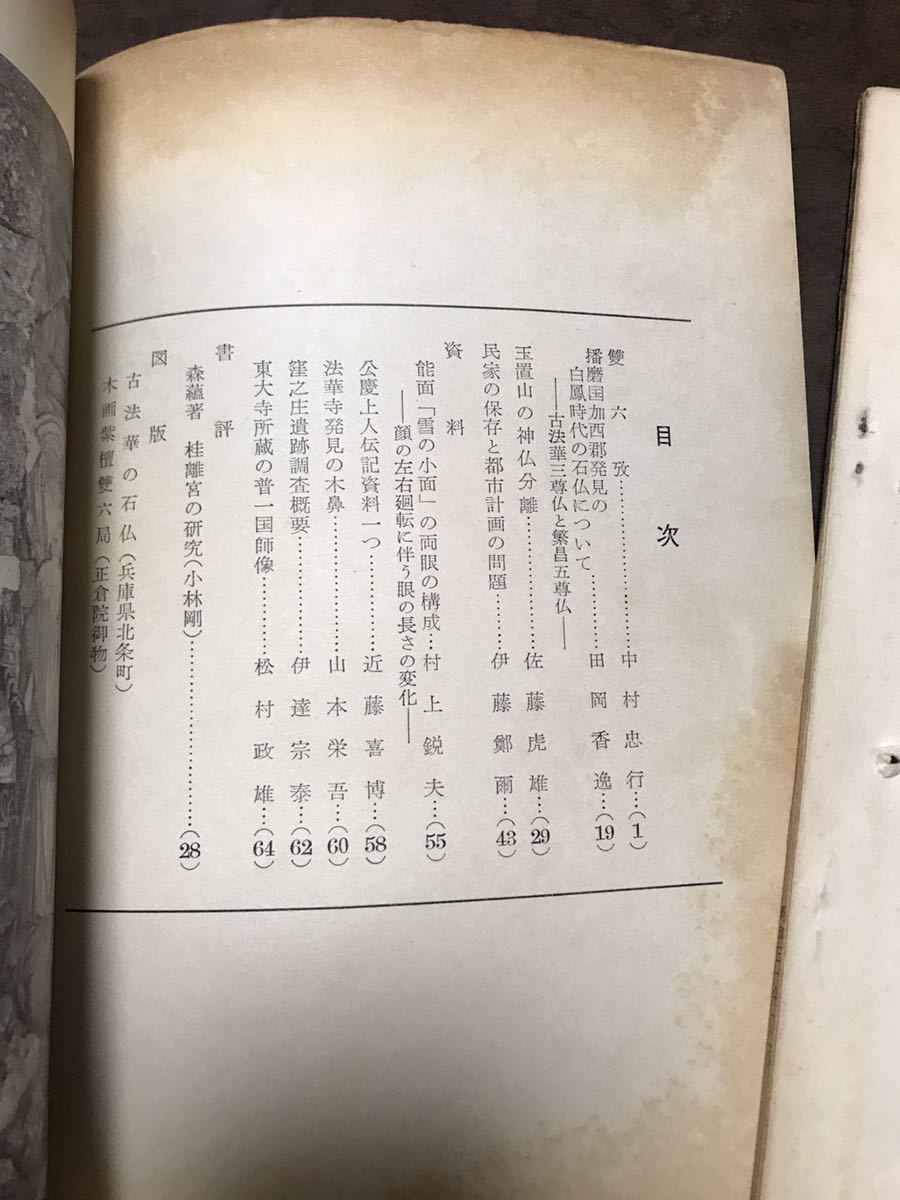 目次
雙六攷……………………中村忠行…(1)
播磨国加西郡発見の
白鳳時代の石仏について…………田岡香逸…(19)
――古法華三尊仏と繁昌五尊仏――
玉置山の神仏分離…………佐藤虎雄…(29)
民家の保存と都市計画の問題………伊藤鄭爾…(43)
資料
能面「雪の小面」の両眼の構成…村上鋭夫…(55)
――顔の左右廻転に伴う眼の長さの変化――
公慶上人伝記資料一つ…………近藤喜博…(58)
法華寺発見の木鼻…………山本栄吾…(60)
窪之庄遺跡調査概要…………伊達宗泰…(62)
東大寺所蔵の普一国師像………松村政雄…(64)
書評
森蘊著 桂離宮の研究(小林剛)……………………(28)
図版
古法華の石仏(兵庫県北条町)
木画紫檀雙六局(正倉院御物)